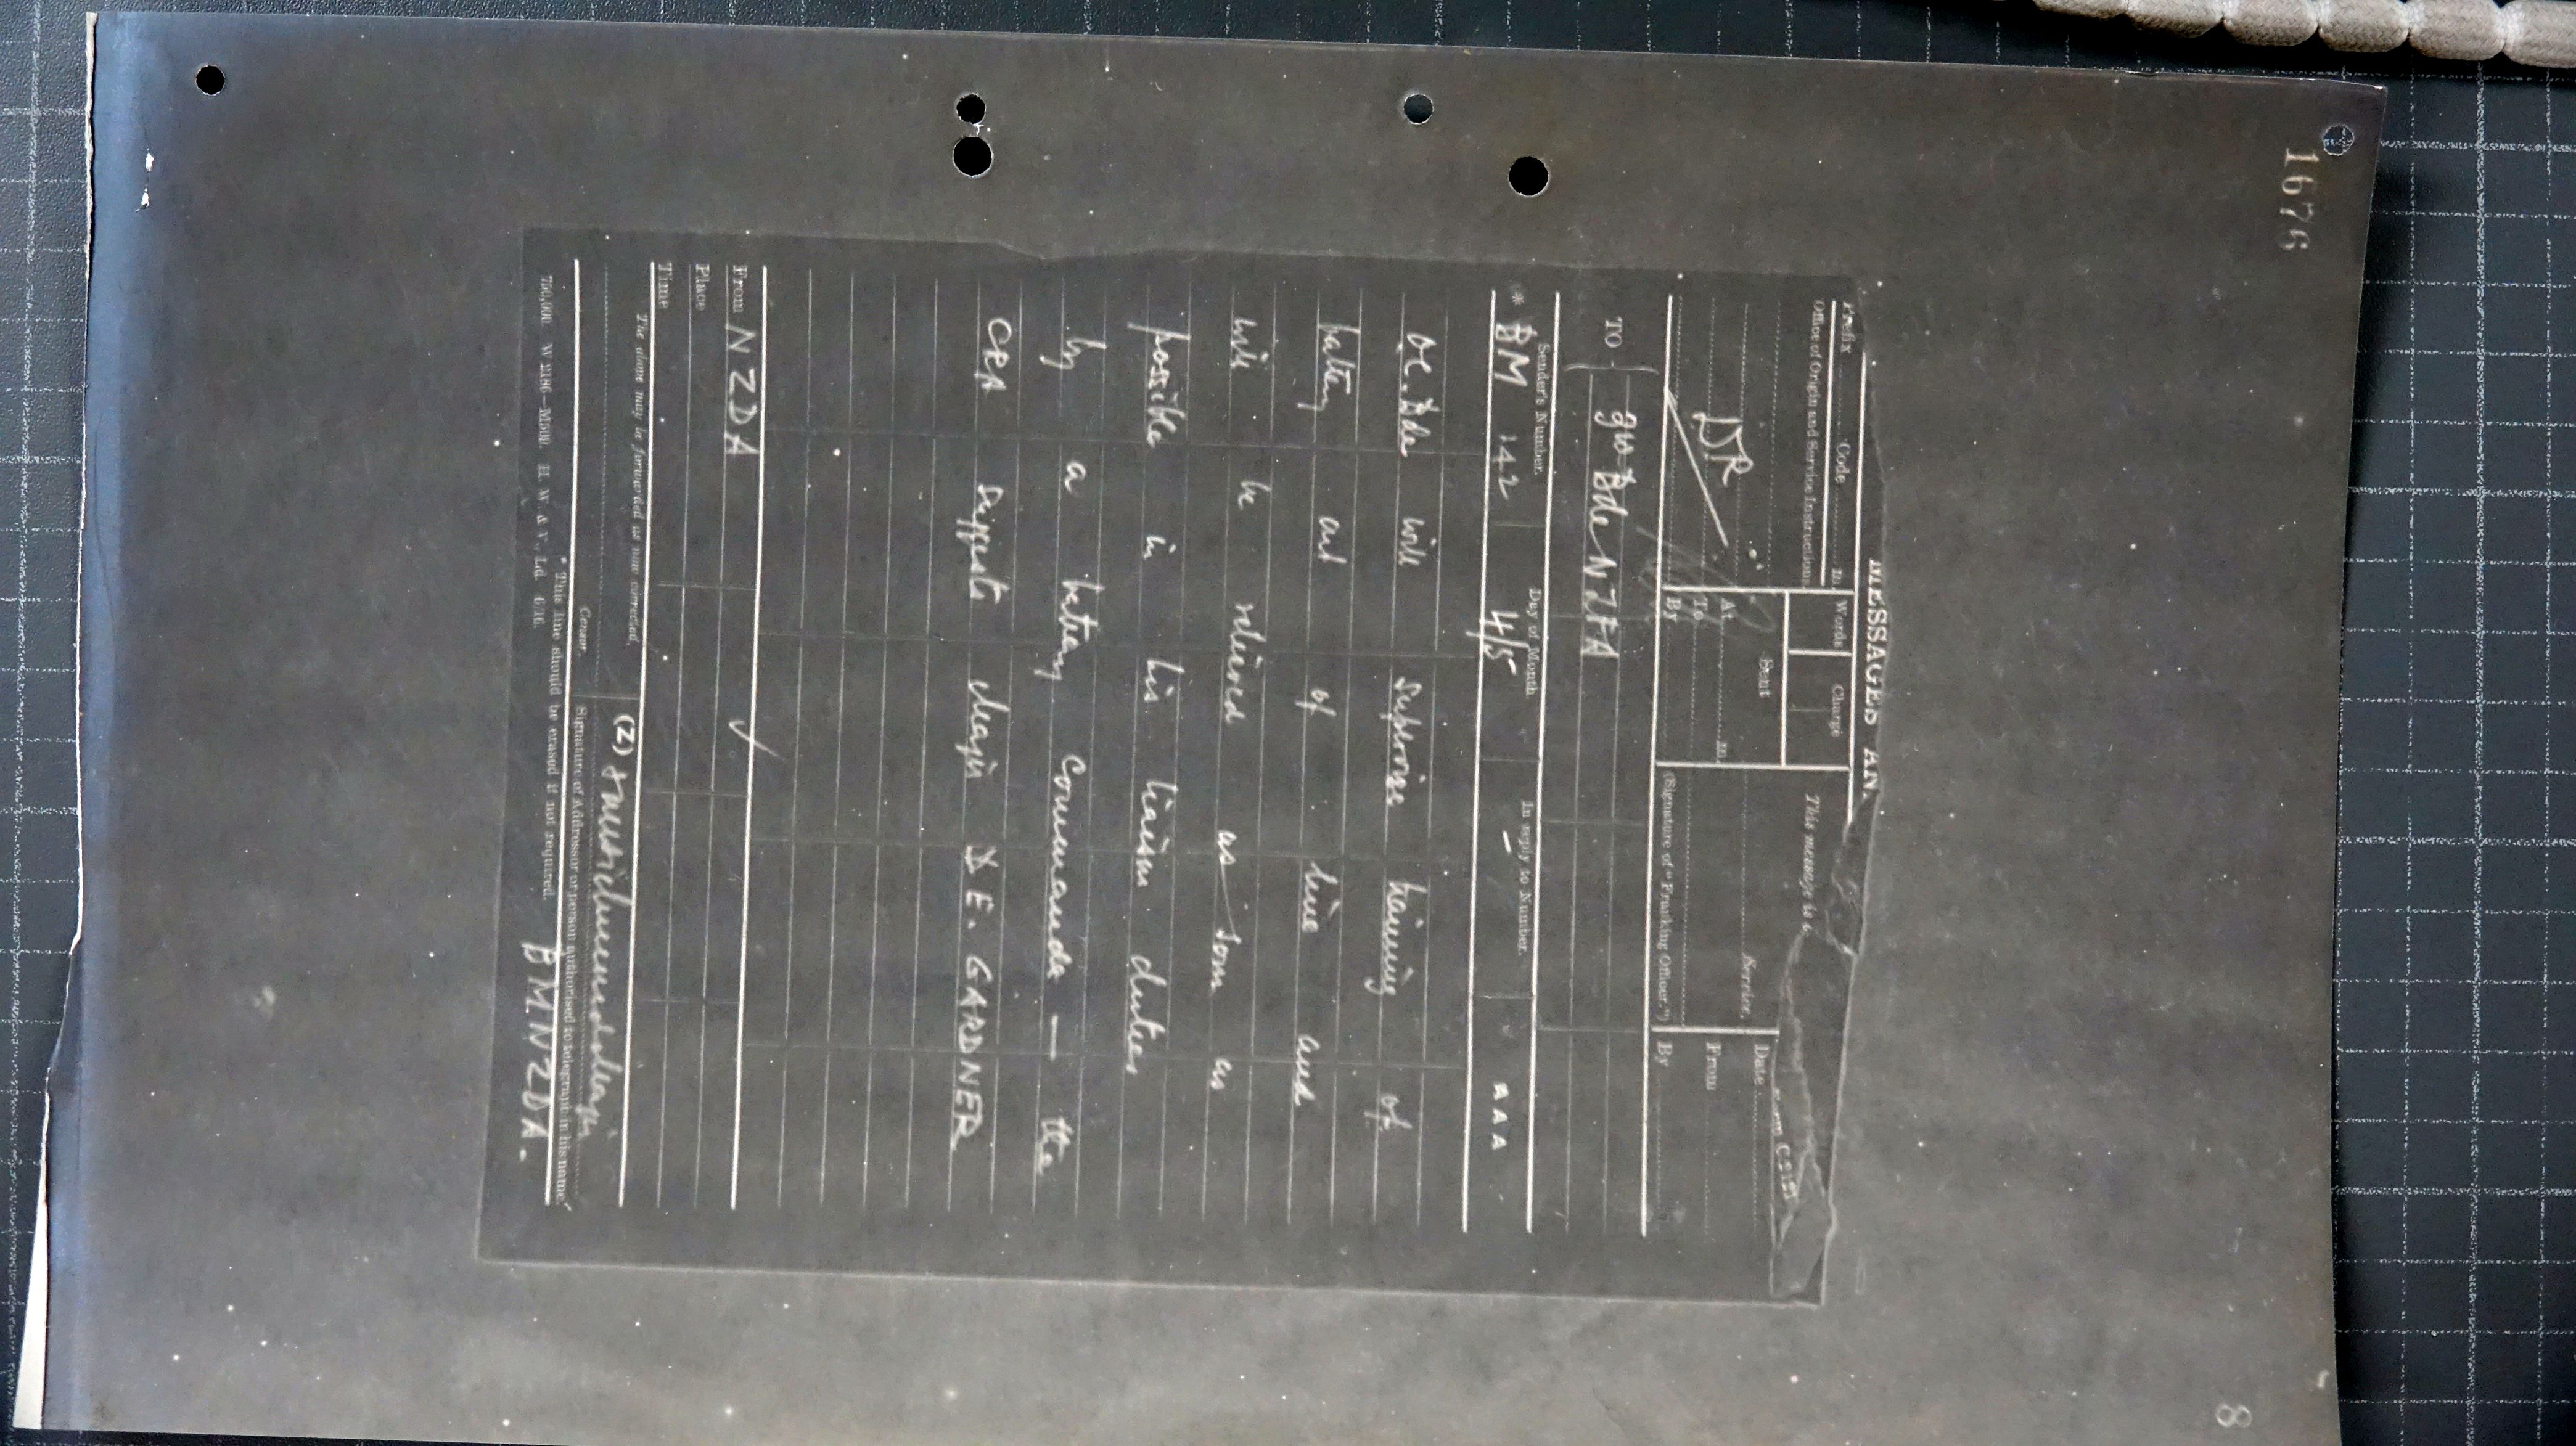 1676
MESSAGES AN
Prefix Code m
Words Charge
This message is
Office of Origin and Service Instructions
Sent
Service.
Date
From
By
DR
At m
To
By
(Signature of "Franking Officer.")
TO Bde NZFA
Sender's Number. Day of Month In reply to Number.
* BM 142 4/5 — AAA
OC. Bde will supervise training of
battery out of line and
will be relieved as soon as
possible in his liaison duties
by a battery commander — the
CRA suggests Major D E. GARDNER
From NZDA
Place
Time
The above may be forwarded as now corrected. (Z)
Censor. Signature of Addressor or person authorised to telegraph in his name
* This line should be erased if not required.
BMNZDA.
750,000. W 2186—M509. H. W. & V., Ld. 6/16.
8